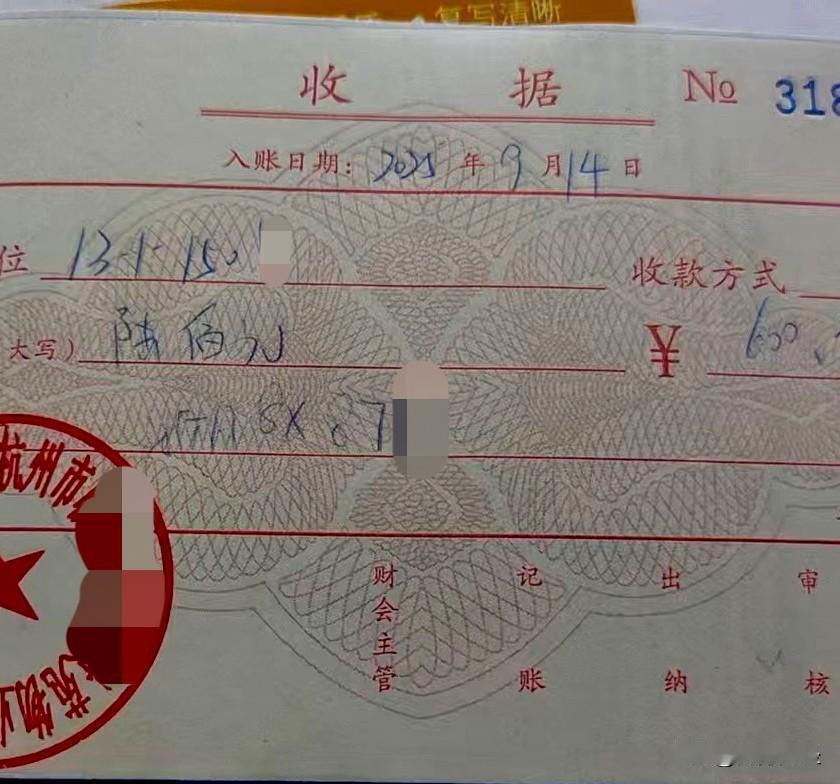 复写清晰
收据 No 318
入账日期: 2025 年 9 月 14 日
位 13-1-150 收款方式
大写) 陆佰元 ¥ 600
杭州市
财会主管 记账 出纳 审核